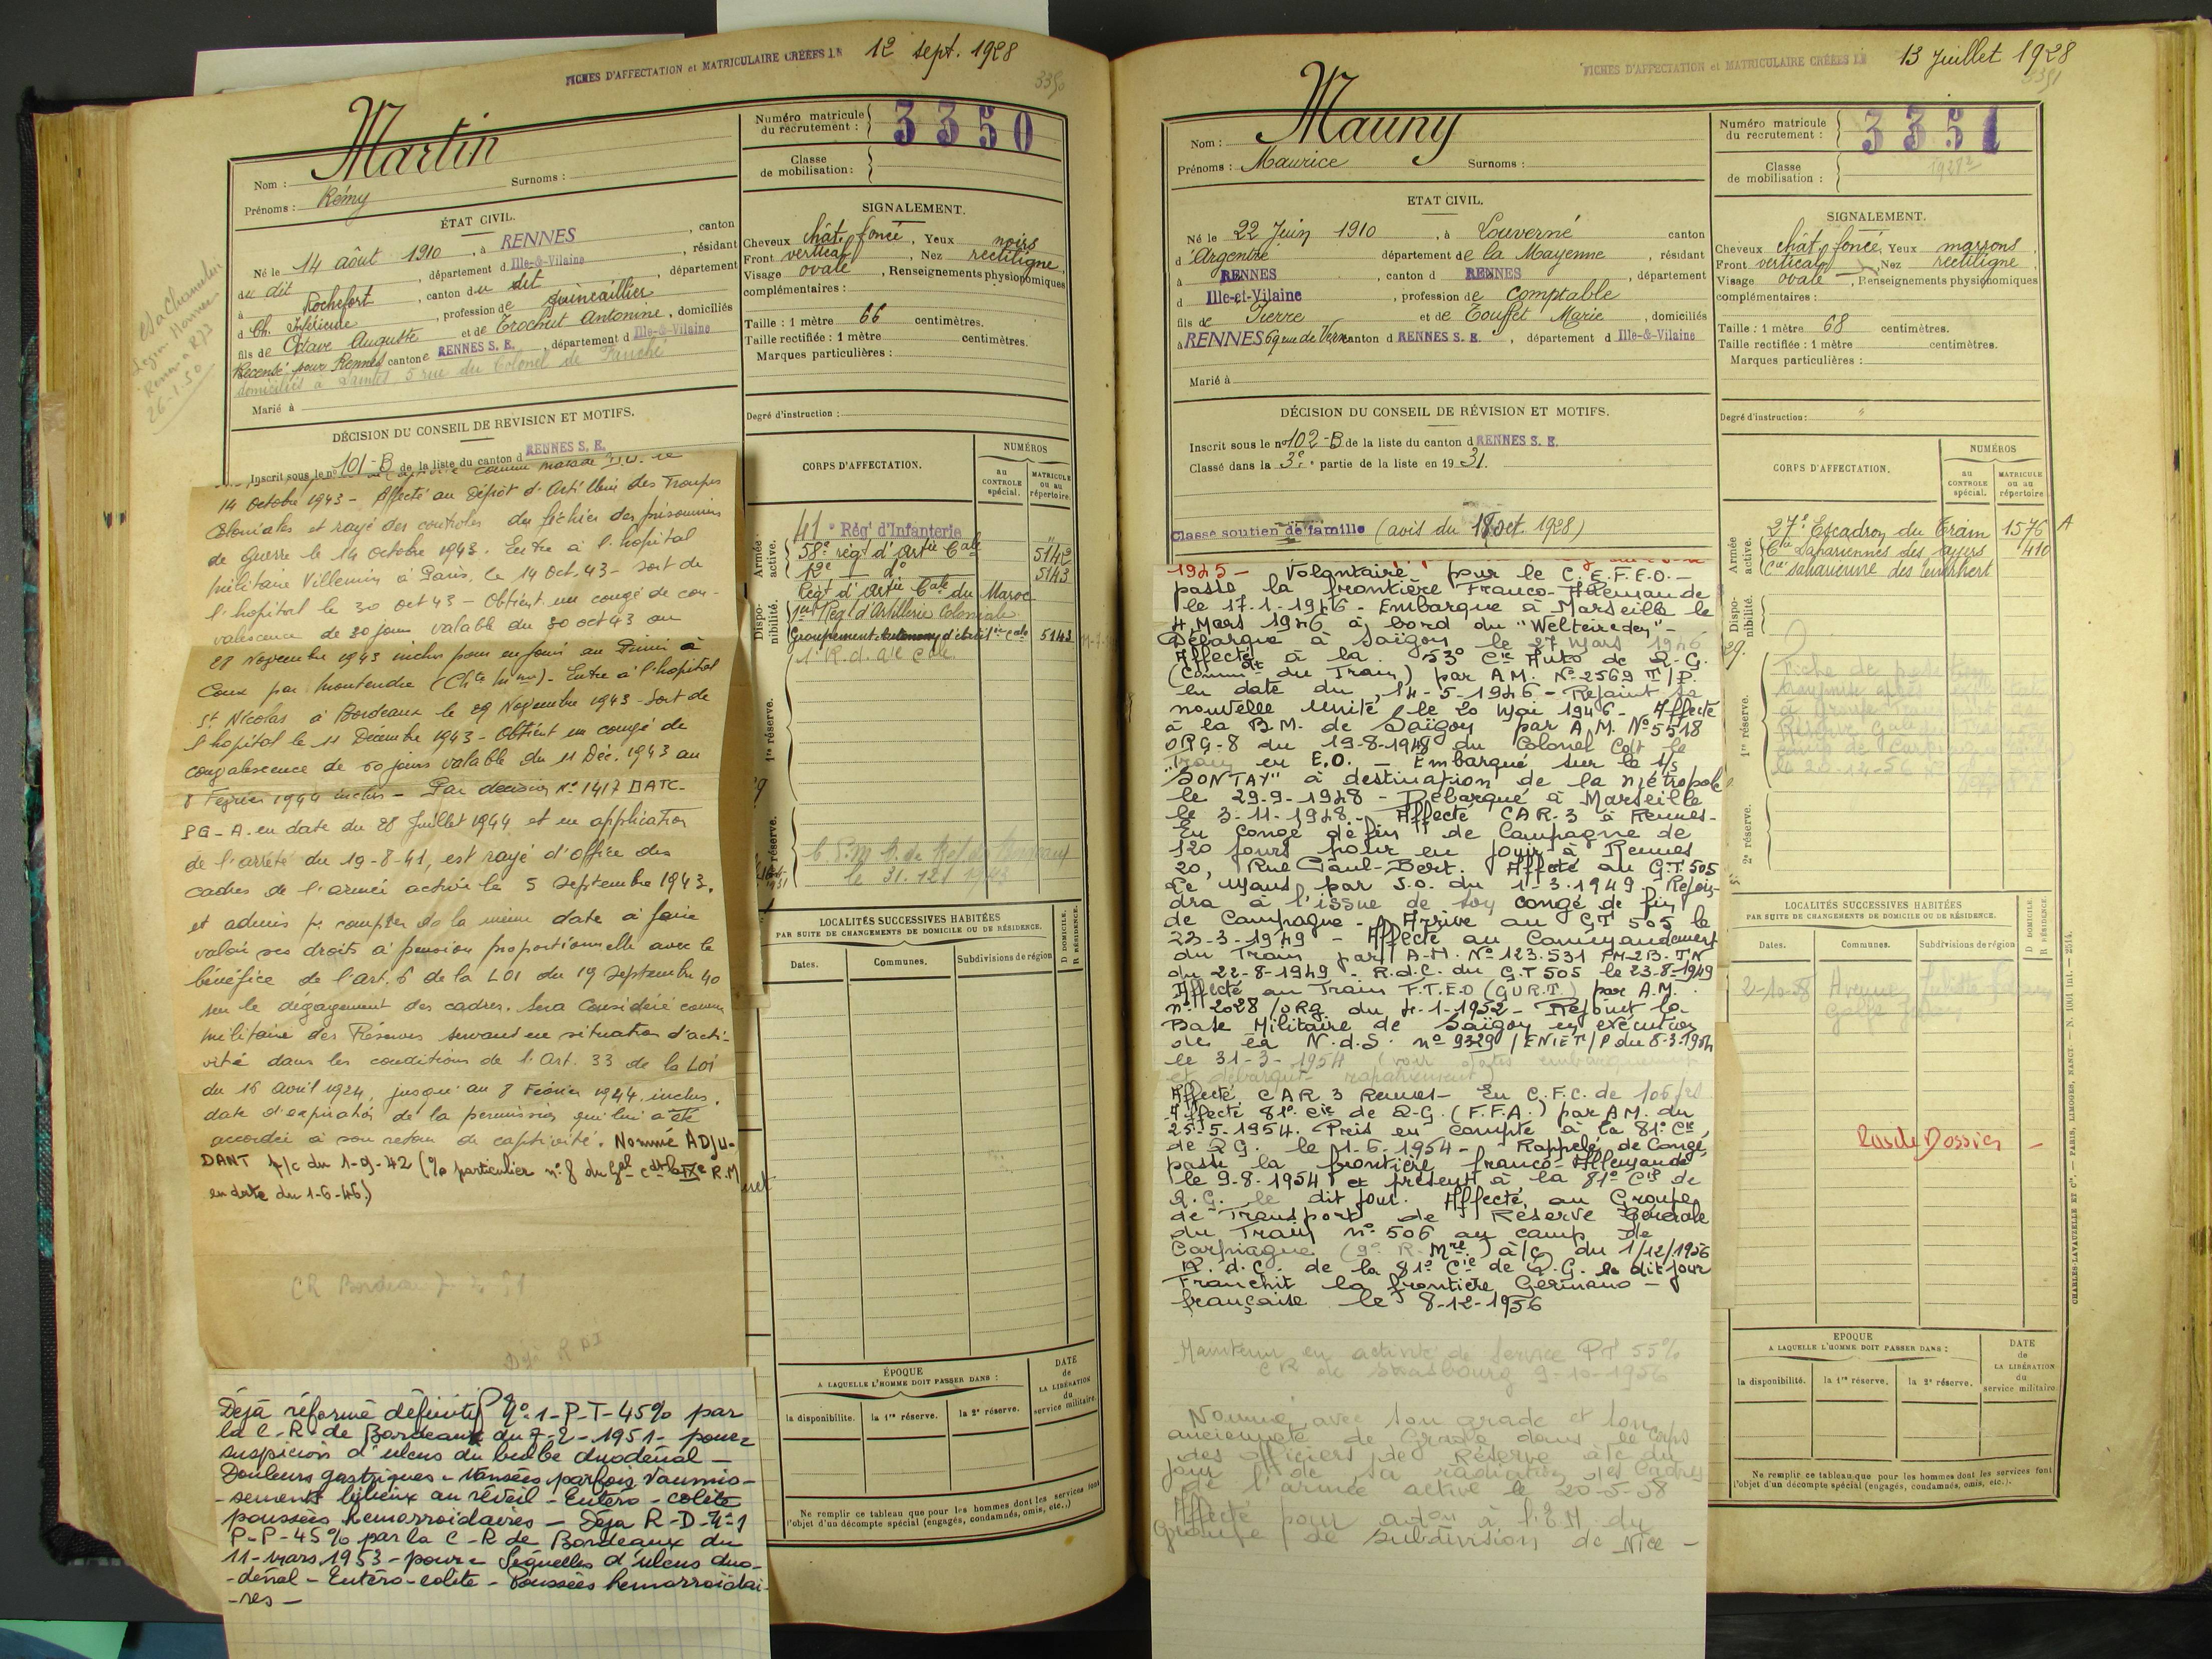 FICHES D'AFFECTATION et MATRICULAIRE CRÉÉES LE 12 sept. 1928
3350
Nom : Martin
Prénoms : Rémy Surnoms :
Numéro matricule du recrutement : 3350
Classe de mobilisation :
ÉTAT CIVIL.
Né le 14 août 1910, à RENNES, canton
du dit, département d Ille-&-Vilaine, résidant
à Rochefort, canton du dit, département
d Ch. Inférieure, profession de quincaillier
fils de Octave Auguste et de Trochut Antonine, domiciliés
Recensé pour Rennes canton RENNES S. E., département d Ille-&-Vilaine
domiciliés à Saintes, 5 rue du Colonel de
Marié à
DÉCISION DU CONSEIL DE REVISION ET MOTIFS.
Inscrit sous le n° 101-B de la liste du canton d RENNES S. E.
Légion
26-1-50
SIGNALEMENT.
Cheveux chât. foncé, Yeux noirs
Front vertical, Nez rectiligne
Visage ovale, Renseignements physionomiques
complémentaires :
Taille : 1 mètre 66 centimètres.
Taille rectifiée : 1 mètre centimètres.
Marques particulières :
Degré d'instruction :
CORPS D'AFFECTATION.
NUMÉROS
au CONTROLE spécial.
MATRICULE ou au répertoire.
Armée active.
41e Régt d'Infanterie "
58e régt d'artie Cale 5142
12e do 5143
Dispo- nibilité.
Régt d'artie Cale du Maroc
1er Régt d'Artillerie Coloniale
Groupement autonome d'artil. cale 5143
1er R.d. Aie Cale
1re réserve.
2e réserve.
le 31.12
LOCALITÉS SUCCESSIVES HABITÉES
PAR SUITE DE CHANGEMENTS DE DOMICILE OU DE RÉSIDENCE.
Dates. Communes. Subdivisions de région
D DOMICILE. R RÉSIDENCE.
ÉPOQUE
A LAQUELLE L'HOMME DOIT PASSER DANS :
la disponibilité. la 1re réserve. la 2e réserve.
DATE de LA LIBÉRATION du service militaire.
Ne remplir ce tableau que pour les hommes dont les services font
l'objet d'un décompte spécial (engagés, condamnés, omis, etc.,)
comme malade D.U. le
14 Octobre 1943 - Affecté au Dépôt d'Artillerie des Troupes
Coloniales et rayé des controles du fichier des prisonniers
de Guerre le 14 octobre 1943. Entre à l'hopital
militaire Villemin à Paris, le 14 Oct. 43 - sort de
l'hopital le 30 oct 43 - Obtient un congé de con-
valescence de 30 jours valable du 30 oct 43 au
28 Novembre 1943 inclus pour en jouir au Pinier à
Coux par Montendre (Chte Mme) - Entre à l'hopital
St Nicolas à Bordeaux le 29 Novembre 1943 - Sort de
l'hopital le 11 Décembre 1943 - Obtient un congé de
convalescence de 60 jours valable du 11 Déc. 1943 au
8 Février 1944 inclus - Par décision N° 1417 DATC-
PG-A. en date du 28 Juillet 1944 et en application
de l'arrêté du 19-8-41, est rayé d'office des
cadres de l'armée active le 5 Septembre 1943.
et admis p. compter de la même date à faire
valoir ses droits à pension proportionnelle avec le
bénéfice de l'art. 6 de la LOI du 19 Septembre 40
sur le dégagement des cadres. Sera considéré comme
militaire des Réserves servant en situation d'acti-
vité dans les conditions de l'Art. 33 de la LOI
du 16 avril 1924, jusqu'au 8 Février 1944, inclus,
date d'expiration de la permission qui lui a été
accordée à son retour de captivité. Nommé ADJU-
DANT p/c du 1-9-42 (O/o particulier n° 8 du Gal Cdt la IXe R.M
en date du 1-6-46.)
CR Bordeaux 7 2 51
Déjà réformé définitif N°-1-P-T-45% par
la C-R-de Bordeaux du 7-2-1951- pour=
suspicion d'ulcus du bulbe duodénal -
Douleurs gastriques - Nausées parfois vomis-
-sements bilieux au réveil - Entéro-colite
poussées hémorroïdaires - Déjà R-D-N°-1
P-P-45% par la C-R de Bordeaux du
11-mars 1953 - pour= Séquelles d'ulcus duo-
-dénal - Entéro-colite - Poussées hémorroïdai-
-res -
FICHES D'AFFECTATION et MATRICULAIRE CRÉÉES LE 13 Juillet 1928
3351
Nom : Mauny
Prénoms : Maurice Surnoms :
Numéro matricule du recrutement : 3351
Classe de mobilisation : 1928
ETAT CIVIL.
Né le 22 Juin 1910, à Louverné canton
d'Argentré département de la Mayenne, résidant
à RENNES, canton d RENNES, département
d Ille-et-Vilaine, profession de comptable
fils de Pierre et de Touffet Marie, domiciliés
à RENNES 69 rue de Vern canton d RENNES S. E., département d Ille-&-Vilaine
Marié à
DÉCISION DU CONSEIL DE RÉVISION ET MOTIFS.
Inscrit sous le n° 102-B de la liste du canton d RENNES S. E.
Classé dans la 3e partie de la liste en 1931.
Classé soutien de famille (avis du 18 oct. 1928)
SIGNALEMENT.
Cheveux chât. foncé, Yeux marrons
Front vertical, Nez rectiligne
Visage ovale, Renseignements physionomiques
complémentaires :
Taille : 1 mètre 68 centimètres.
Taille rectifiée : 1 mètre centimètres.
Marques particulières :
Degré d'instruction : "
CORPS D'AFFECTATION.
NUMÉROS
au CONTROLE spécial.
MATRICULE ou au répertoire
Armée active.
27e Escadron du Train 1576 A
Cie Sahariennes des Ajjers 410
Cie saharienne des
Dispo- nibilité.
1re réserve.
Fiche de
le 20-12-56
2e réserve.
LOCALITÉS SUCCESSIVES HABITÉES
PAR SUITE DE CHANGEMENTS DE DOMICILE OU DE RÉSIDENCE.
Dates. Communes. Subdivisions de région
D DOMICILE. R RÉSIDENCE.
2-10-58 Avenue
Golfe Juan
Pas de Dossier -
EPOQUE
A LAQUELLE L'HOMME DOIT PASSER DANS :
la disponibilité. la 1re réserve. la 2e réserve.
DATE de LA LIBÉRATION du service militaire
Ne remplir ce tableau que pour les hommes dont les services font
l'objet d'un décompte spécial (engagés, condamnés, omis, etc.).
CHARLES-LAVAUZELLE ET Cie. — PARIS, LIMOGES, NANCY. — N. 1001 int. — 2514.
1945 - Volontaire pour le C.E.F.E.O. -
passe la frontière Franco-Allemande
le 17-1-1946 - Embarque à Marseille le
4 Mars 1946 à bord du "Welteireden" -
Débarque à Saïgon le 27 Mars 1946
Affecté à la 53° Cie Auto de Q-G.
(Commt du Train) par A.M. N° 2569 T/P.
en date du 14-5-1946 - Rejoint sa
nouvelle Unité le 20 Mai 1946 - Affecté
à la B.M. de Saïgon par A.M. N° 5518
ORG-8 du 19-8-1948 du Colonel Cdt le
Train en E.O. - Embarqué sur le S/S
"SONTAY" à destination de la métropole
le 29-9-1948 - Débarqué à Marseille
le 3-11-1948 - Affecté CAR.3 à Rennes -
En congé de fin de Campagne de
120 jours pour en jouir à Rennes
20, Rue Paul-Bert. Affecté au G.T.505
Le Mans par S.O. du 1-3-1949. Rejoin-
dra à l'issue de son congé de fin
de Campagne - Arrive au GT 505 le
22-3-1949 - Affecté au Commandement
du Train par A-M. N° 123.531 PM-2B.TN
du 22-8-1949 - R.d.C. du G.T 505 le 23-8-1949
Affecté au Train F.T.E.O (GURT.) par A.M.
n° 2028/ORG du 4-1-1952 - Rejoint la
Base Militaire de Saïgon en exécution
de la N.d.S. n° 9329/ENIET/P du 8-3-1954
le 31-3-1954 (voir dates embarquement
et débarqt. rapatriement)
Affecté CAR 3 Rennes - En C.F.C. de 106 jrs
Affecté 81° Cie de Q-G. (F.F.A.) par A.M. du
25-5-1954. Pris en compte à la 81° Cie
de QG. le 1-6-1954 - Rappelé de Congé,
passe la frontière franco-Allemande
le 9-8-1954 et présent à la 81° Cie de
Q.G. le dit jour. Affecté au Groupe
de Transport de Réserve Générale
du Train n° 506 au camp de
Carpiagne (9° R. Mre.) à/c du 1/12/1956
R.d.C. de la 81° Cie de Q.G. le dit jour
Franchit la frontière Germano-
française le 8-12-1956
Maintenu en activité de Service PT 55%
CR de Strasbourg 9-10-1956
Nommé avec son grade et son
ancienneté de Grade dans le Corps
des officiers de Réserve à/c du
jour de sa radiation des Cadres
de l'armée active le 20-5-58
Affecté pour admon à l'E.M. du
groupe de Subdivision de Nice -